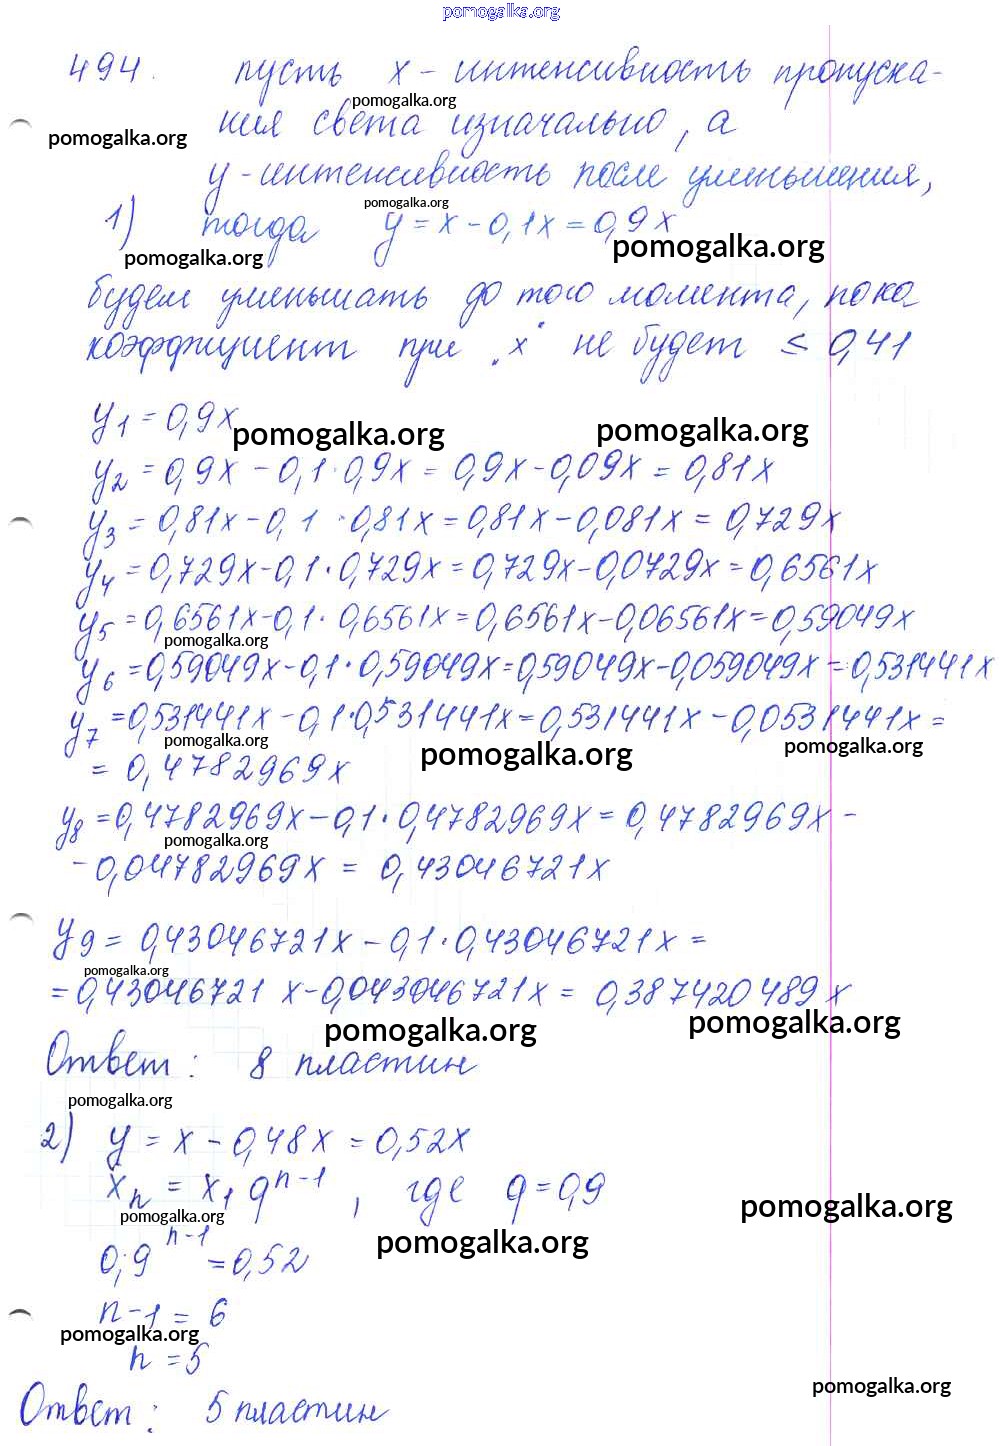 pomogalka.org
494. пусть x - интенсивность пропуска-
pomogalka.org
ния света изначально, а
pomogalka.org
y - интенсивность после уменьшения,
pomogalka.org
1) тогда y = x - 0,1x = 0,9x
pomogalka.org
pomogalka.org
будем уменьшать до того момента, пока
коэффициент при „x“ не будет ≤ 0,41
y1 = 0,9x
pomogalka.org
pomogalka.org
y2 = 0,9x - 0,1 · 0,9x = 0,9x - 0,09x = 0,81x
y3 = 0,81x - 0,1 · 0,81x = 0,81x - 0,081x = 0,729x
y4 = 0,729x - 0,1 · 0,729x = 0,729x - 0,0729x = 0,6561x
y5 = 0,6561x - 0,1 · 0,6561x = 0,6561x - 0,06561x = 0,59049x
pomogalka.org
y6 = 0,59049x - 0,1 · 0,59049x = 0,59049x - 0,059049x = 0,531441x
y7 = 0,531441x - 0,1 · 0,531441x = 0,531441x - 0,0531441x =
pomogalka.org
pomogalka.org
pomogalka.org
= 0,4782969x
y8 = 0,4782969x - 0,1 · 0,4782969x = 0,4782969x -
pomogalka.org
- 0,04782969x = 0,43046721x
y9 = 0,43046721x - 0,1 · 0,43046721x =
pomogalka.org
= 0,43046721x - 0,043046721x = 0,387420489x
pomogalka.org
pomogalka.org
Ответ: 8 пластин
pomogalka.org
2) y = x - 0,48x = 0,52x
xn = x1 q^n-1, где q = 0,9
pomogalka.org
pomogalka.org
pomogalka.org
0,9^n-1 = 0,52
n - 1 = 6
pomogalka.org
n = 5
pomogalka.org
Ответ: 5 пластин